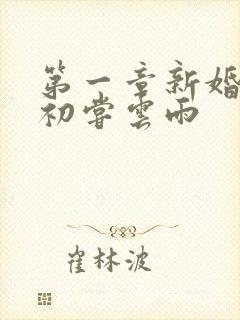 第一章新婚
初嘗雲雨
崔林波